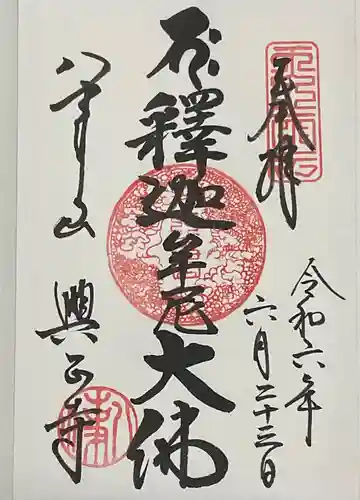 奉拝
令和六年
六月二十三日
釋迦牟尼大佛
八事山
興正寺